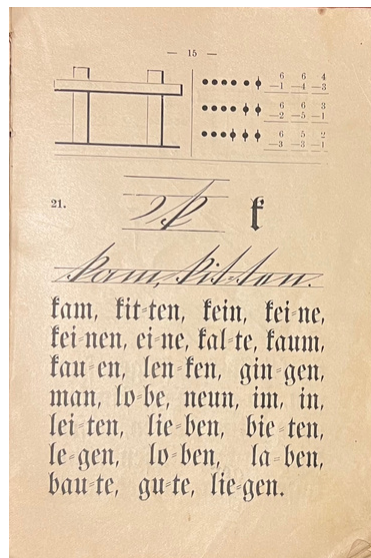 — 15 —
6 6 4
—1 —4 —3
6 6 3
—2 —5 —1
6 5 2
—3 —3 —1
21. k k
kam, kitten.
kam, kit-ten, kein, kei-ne,
kei-nen, ei-ne, kal-te, kaum,
kau-en, len-ken, gin-gen,
man, lo-be, neun, im, in,
lei-ten, lie-ben, bie-ten,
le-gen, lo-ben, la-ben,
bau-te, gu-te, lie-gen.